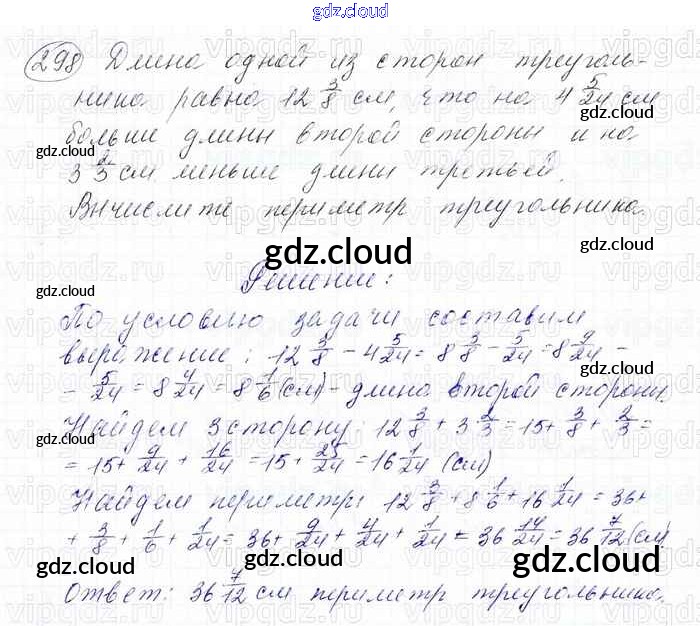 gdz.cloud
298 Длина одной из сторон треуголь-
ника равна 12 3/8 см, что на 4 5/24 см
gdz.cloud
больше длины второй стороны и на
gdz.cloud
3 2/3 см меньше длины третьей.
Вычислите периметр треугольника.
gdz.cloud
Решение:
gdz.cloud
По условию задачи составим
выражение: 12 3/8 - 4 5/24 = 8 3/8 - 5/24 = 8 9/24 -
gdz.cloud
- 5/24 = 8 4/24 = 8 1/6 (см) - длина второй стороны.
Найдем 3 сторону: 12 3/8 + 3 2/3 = 15 + 3/8 + 2/3 =
gdz.cloud
= 15 + 9/24 + 16/24 = 15 + 25/24 = 16 1/24 (см)
Найдем периметр: 12 3/8 + 8 1/6 + 16 1/24 = 36 +
+ 3/8 + 1/6 + 1/24 = 36 + 9/24 + 4/24 + 1/24 = 36 14/24 = 36 7/12 (см)
gdz.cloud
gdz.cloud
Ответ: 36 7/12 см периметр треугольника.
gdz.cloud